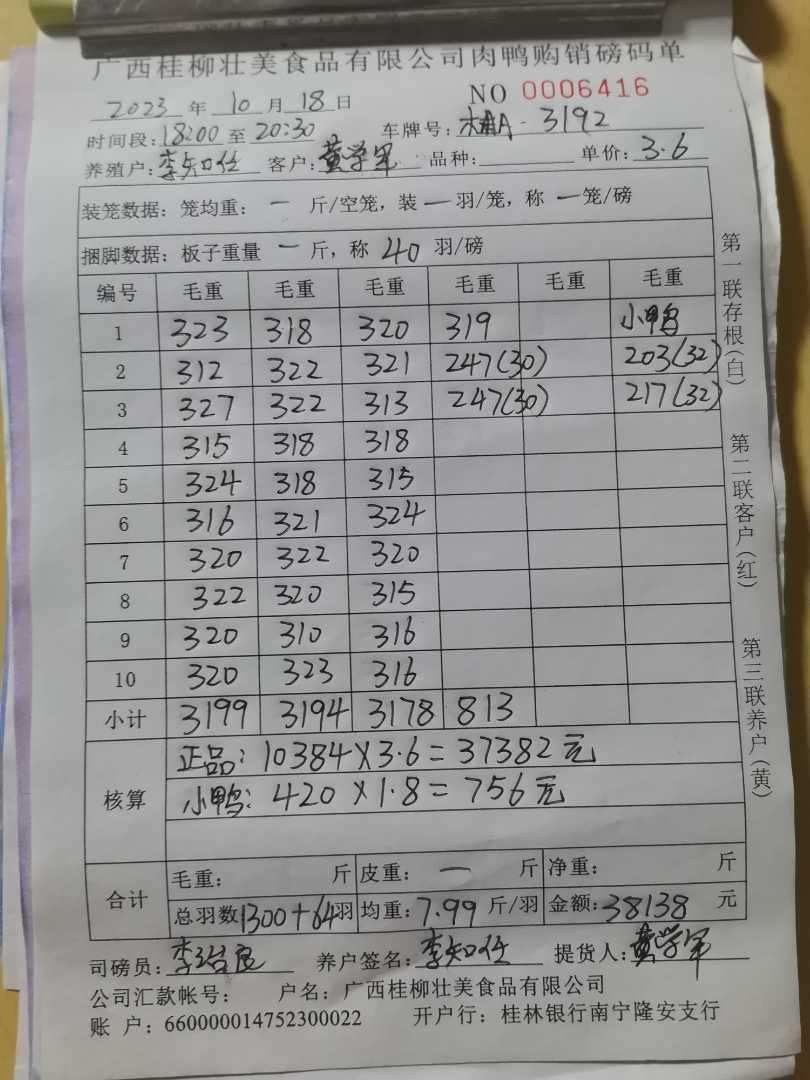 广西桂柳壮美食品有限公司肉鸭购销磅码单
NO 0006416
2023 年 10 月 18 日
时间段:18:00 至 20:30 车牌号: A-3192
养殖户:李知任 客户:黄学军 品种: 单价:3.6
装笼数据:笼均重: 一 斤/空笼,装 一 羽/笼,称 一 笼/磅
捆脚数据:板子重量 一 斤,称 40 羽/磅
编号 毛重 毛重 毛重 毛重 毛重 毛重
1 323 318 320 319 小鸭
2 312 322 321 247(30) 203(32)
3 327 322 313 247(30) 217(32)
4 315 318 318
5 324 318 315
6 316 321 324
7 320 322 320
8 322 320 315
9 320 310 316
10 320 323 316
小计 3199 3194 3178 813
核算
正品: 10384×3.6=37382元
小鸭: 420×1.8=756元
合计
毛重: 斤 皮重: 一 斤 净重: 斤
总羽数1300+64羽 均重:7.99 斤/羽 金额:38138 元
司磅员:李 良 养户签名:李知任 提货人:黄学军
公司汇款帐号: 户名:广西桂柳壮美食品有限公司
账 户:660000014752300022 开户行:桂林银行南宁隆安支行
第一联存根(白)
第二联客户(红)
第三联养户(黄)